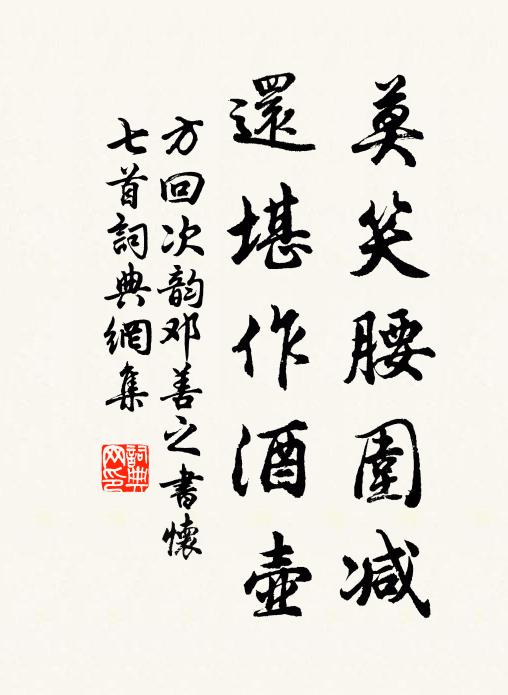 莫笑腰圍减
還堪作酒壺
方回次韵邓善之書懷
七首詞典網集
詞典
网印